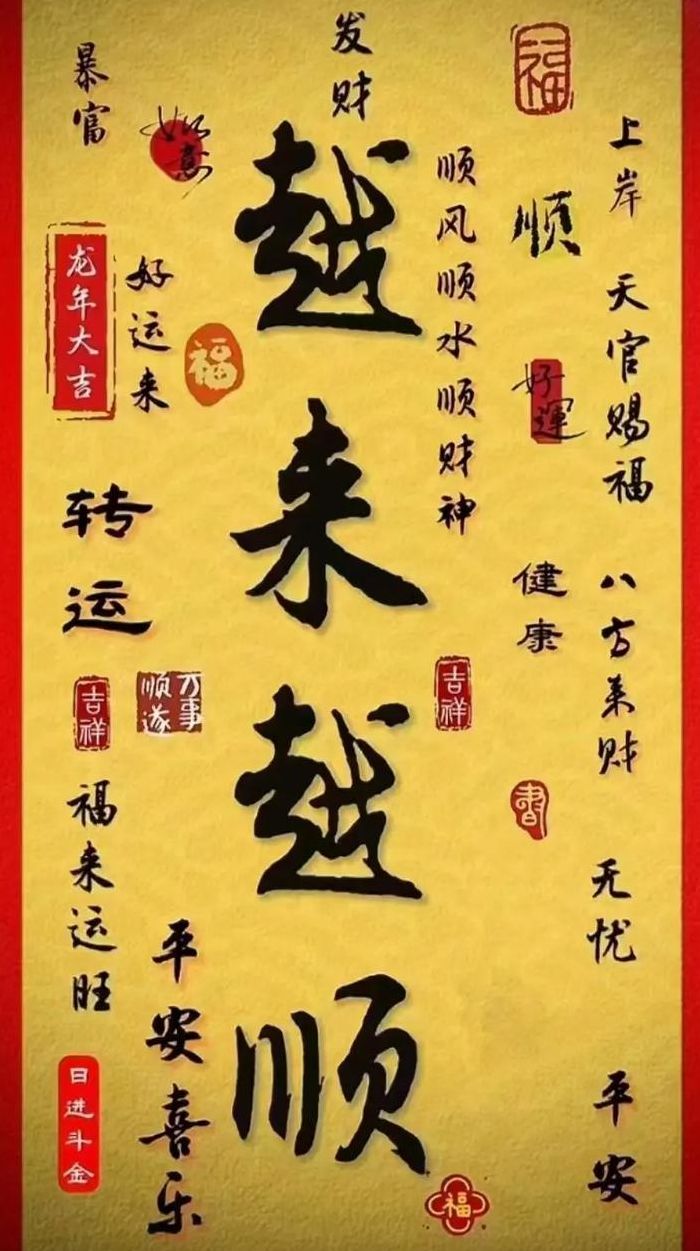 发财
暴富
如意
福
上岸
顺
越来越顺
顺风顺水顺财神
天官赐福
龙年大吉
好运来
福
好運
转运
健康
八方来财
吉祥
万事
顺遂
吉祥
福来运旺
无忧
平安喜乐
日进斗金
平安
福